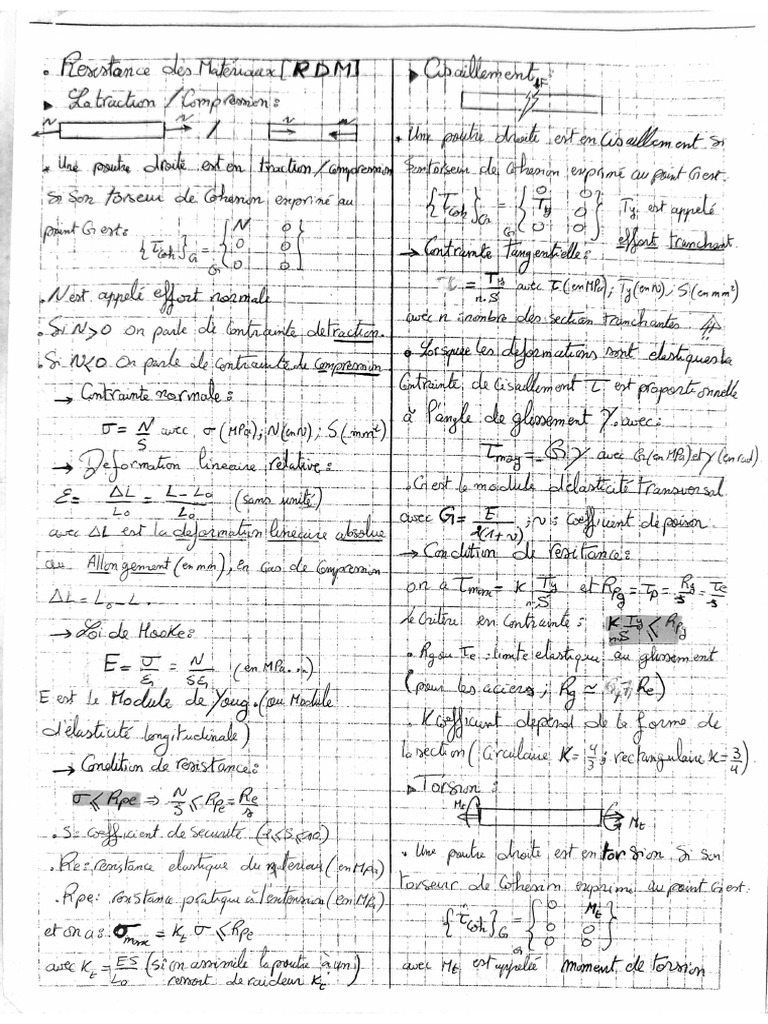 • Resistance des Materiaux [RDM]
▶ La traction / Compression :
N N /
• Une poutre droite est en traction/compression
si son torseur de Cohesion exprimé au
point G est : {τcoh}G = G{N 0 / 0 0 / 0 0}
. N est appelé effort normale
. Si N>0 on parle de contrainte de traction.
. Si N<0 on parle de contrainte de compression
→ Contrainte normale :
σ = N/S avec σ (MPa) ; N (en N) ; S (mm²)
→ Deformation lineaire relative :
ε = ΔL/L₀ = L-L₀/L₀ (sans unité)
avec ΔL est la deformation lineaire absolue
ou Allongement (en mm), en cas de compression
ΔL = L₀-L.
→ Loi de Hooke :
E = σ/ε = N/Sε (en MPa...)
E est le Module de Youg. (ou Module
d'élasticité longitudinale)
→ Condition de resistance :
σ ⩽ Rpe ⇒ N/S ⩽ Rpe = Re/s
. S : coefficient de securité
. Re : resistance elastique du materiau (en MPa)
. Rpe : resistance pratique à l'extension (en MPa)
et on a : σmax = Kt σ ⩽ Rpe
avec Kt = ES/L₀ (si on assimile la poutre à un
ressort de raideur Kt)
▶ Cisaillement :
F
• Une poutre droite est en cisaillement si
son torseur de Cohesion exprimé au point G est.
{τcoh}G = G{0 0 / Ty 0 / 0 0} Ty est appelé
effort tranchant.
→ Contrainte tangentielle :
τ = Ty/n.S avec τ (en MPa) ; Ty (en N) ; S (en mm²)
avec n : nombre des section tranchantes
• Lorsque les deformations sont elastiques la
Contrainte de Cisaillement τ est proportionnelle
à l'angle de glissement γ. avec :
τmoy = G γ avec G (en MPa) et γ (en rad)
. G est le module d'élasticité transversal
avec G = E/2(1+ν) ; ν : coefficient de poison.
→ Condition de resitance :
on a τmax = K Ty/n.S et Rpg = τp = Rg/s = τe/s
le critère en contrainte : K Ty/n.S ⩽ Rpg
• Rg ou τe : limite elastique au glissement
(pour les aciers ; Rg ≃ Re)
. K coefficient depend de la forme de
la section (circulaire K = 4/3 ; rectangulaire K = 3/4)
▶ Torsion :
Mt Mt
• Une poutre droite est en torsion si son
torseur de Cohesion exprimé au point G est :
{τcoh}G = G{0 Mt / 0 0 / 0 0}
avec Mt est appelée moment de torsion